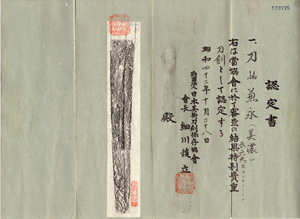 認定書
一、刀 銘 兼永 美濃
右は當協會に於て審査の結果特別貴重
刀剣として認定する
昭和四十二年十月二十八日
日本美術刀剣保存協會
會長 細川護立
殿